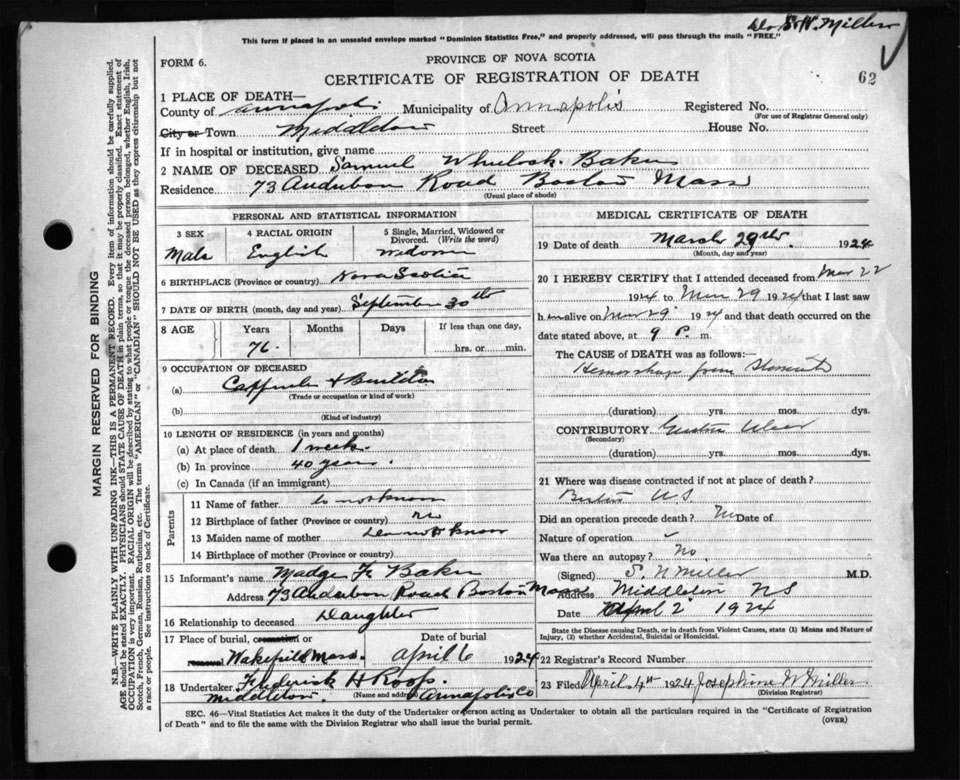 Dr S. N. Miller
This form if placed in an unsealed envelope marked "Dominion Statistics Free," and properly addressed, will pass through the mails "FREE."
FORM 6.
PROVINCE OF NOVA SCOTIA
CERTIFICATE OF REGISTRATION OF DEATH
62
1 PLACE OF DEATH—
County of Annapolis Municipality of Annapolis Registered No.
(For use of Registrar General only)
City or Town Middleton Street House No.
If in hospital or institution, give name
2 NAME OF DECEASED Samuel Wheelock Baker
Residence 73 Audubon Road Boston Mass
(Usual place of abode)
PERSONAL AND STATISTICAL INFORMATION
3 SEX
Male
4 RACIAL ORIGIN
English
5 Single, Married, Widowed or Divorced. (Write the word)
Widower
6 BIRTHPLACE (Province or country) Nova Scotia
7 DATE OF BIRTH (month, day and year) September 30th
8 AGE Years Months Days If less than one day,
76 hrs. or min.
9 OCCUPATION OF DECEASED
(a) & Builder
(Trade or occupation or kind of work)
(b)
(Kind of industry)
10 LENGTH OF RESIDENCE (in years and months)
(a) At place of death 1 week
(b) In province 40 years.
(c) In Canada (if an immigrant)
Parents
11 Name of father do not know
12 Birthplace of father (Province or country) NS
13 Maiden name of mother do not know
14 Birthplace of mother (Province or country)
15 Informant's name Madge F. Baker
Address 73 Audubon Road Boston Mass
16 Relationship to deceased Daughter
17 Place of burial, cremation or removal Date of burial
Wakefield Mass. April 6 1924
18 Undertaker Frederick H Roop
Middleton (Name and address) Annapolis Co
MEDICAL CERTIFICATE OF DEATH
19 Date of death March 29th. 1924
(Month, day and year)
20 I HEREBY CERTIFY that I attended deceased from Mar 22
1924 to Mar 29 1924 that I last saw
h im alive on Mar 29 1924 and that death occurred on the
date stated above, at 9 P. m.
The CAUSE OF DEATH was as follows:—
Hemorrhage from Stomach
(duration) yrs. mos. dys.
CONTRIBUTORY Gastric Ulcer
(Secondary)
(duration) yrs. mos. dys.
21 Where was disease contracted if not at place of death?
Boston US
Did an operation precede death? No Date of
Nature of operation
Was there an autopsy? No
(Signed) S. N Miller M.D.
Address Middleton NS
Date April 2 1924
State the Disease causing Death, or in death from Violent Causes, state (1) Means and Nature of
Injury, (2) whether Accidental, Suicidal or Homicidal.
22 Registrar's Record Number
23 Filed April 4th 1924 Josephine W Miller
(Division Registrar)
SEC. 46—Vital Statistics Act makes it the duty of the Undertaker or person acting as Undertaker to obtain all the particulars required in the "Certificate of Registration
of Death" and to file the same with the Division Registrar who shall issue the burial permit.
(OVER)
MARGIN RESERVED FOR BINDING
N.B.—WRITE PLAINLY WITH UNFADING INK—THIS IS A PERMANENT RECORD. Every item of information should be carefully supplied.
AGE should be stated EXACTLY. PHYSICIANS should STATE CAUSE OF DEATH in plain terms, so that it may be properly classified. Exact statement of
OCCUPATION is very important. RACIAL ORIGIN will be described by stating to what people or tongue the deceased person belonged, whether English, Irish,
Scotch, French, German, Russian, Ruthenian, etc. The terms "AMERICAN" or "CANADIAN" SHOULD NOT BE USED as they express citizenship but not
a race or people. See instructions on back of Certificate.